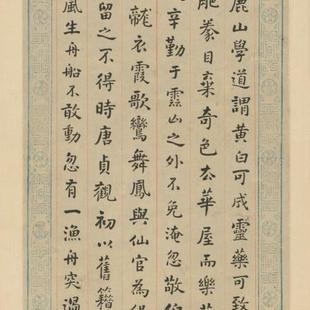 鹿山學道謂黃白可成靈藥可致
肥豢目棄奇色去華屋而樂
辛勤于雲山之外不免淹忽敬
龍衣霞歌鸞舞鳳與仙官為
留之不得時唐貞觀初以舊籍
風生舟船不敢動忽有一漁舟突過